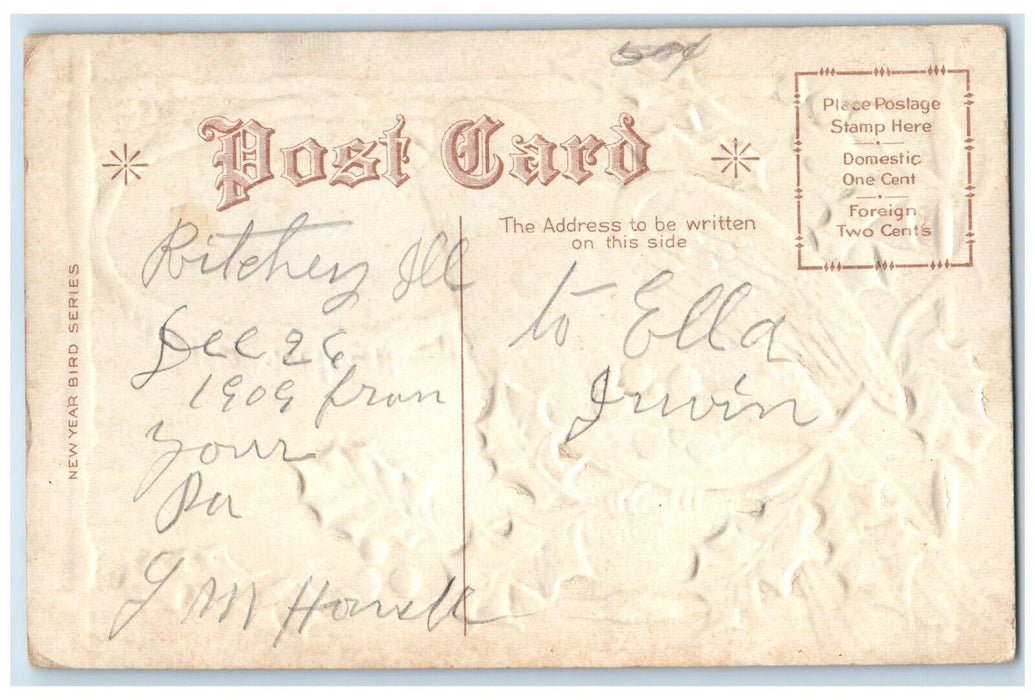 Post Card
Place Postage
Stamp Here
Domestic
One Cent
Foreign
Two Cents
The Address to be written
on this side
NEW YEAR BIRD SERIES
Ritchey Ill
Dec 26
1909 from
your
Pa
M Howell
to Ella
Irwin